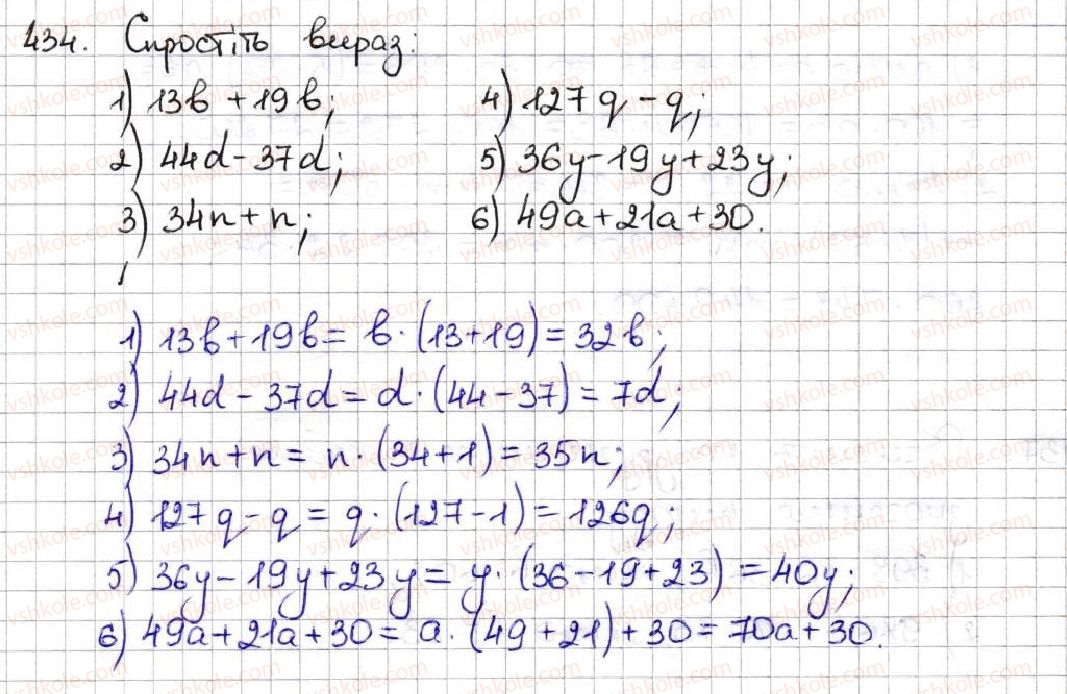 434. Спростіть вираз:
1) 13b + 19b;
2) 44d - 37d;
3) 34n + n;
4) 127q - q;
5) 36y - 19y + 23y;
6) 49a + 21a + 30.
1) 13b + 19b = b · (13 + 19) = 32b;
2) 44d - 37d = d · (44 - 37) = 7d;
3) 34n + n = n · (34 + 1) = 35n;
4) 127q - q = q · (127 - 1) = 126q;
5) 36y - 19y + 23y = y · (36 - 19 + 23) = 40y;
6) 49a + 21a + 30 = a · (49 + 21) + 30 = 70a + 30.
vshkole.com